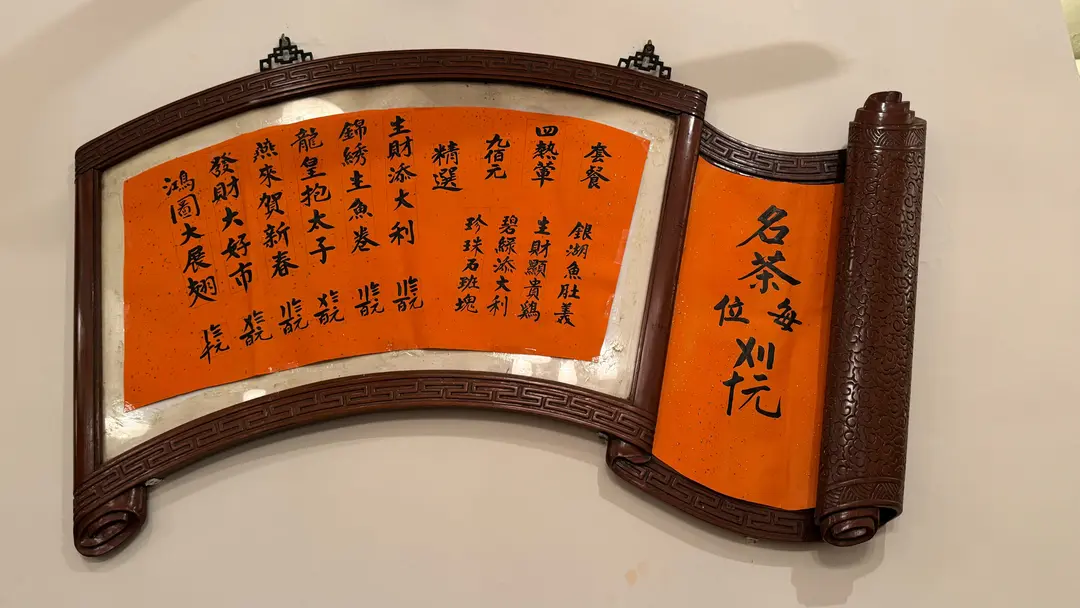 名茶
每位
〤〢十元
套餐
四熱葷
九佰元
銀湖魚肚義
生財顯貴鷄
碧綠添大利
珍珠石班塊
精選
生財添大利
錦綉生魚卷
龍皇抱太子
燕來賀新春
發財大好市
鴻圖大展翅